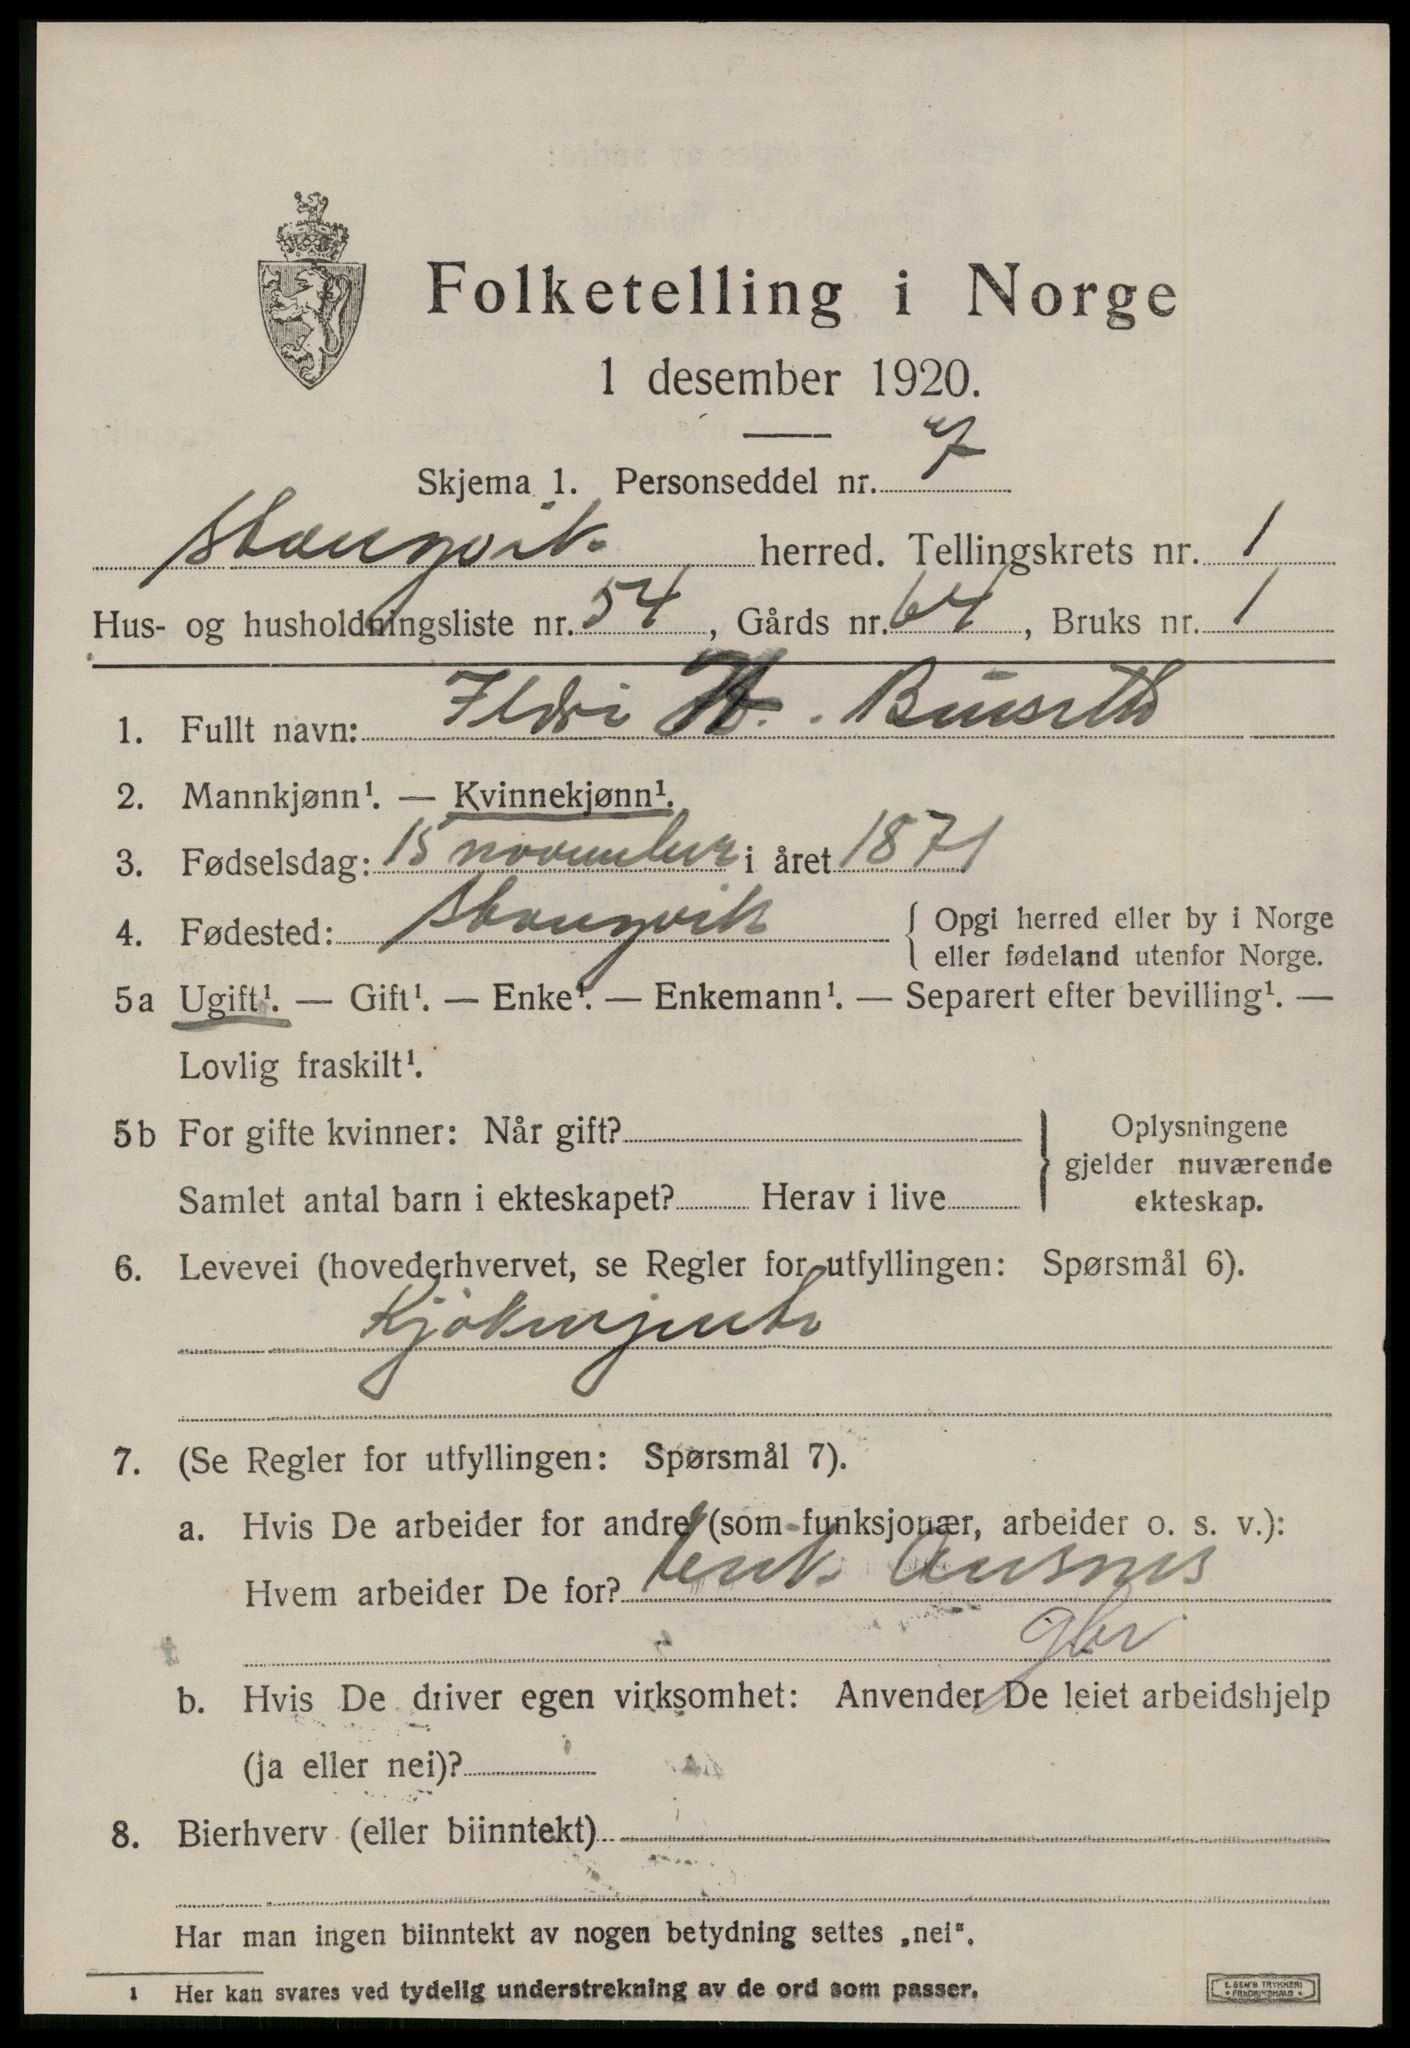 Folketelling i Norge
1 desember 1920.
Skjema 1. Personseddel nr. 7
Stangvik herred. Tellingskrets nr. 1
Hus- og husholdningsliste nr. 54, Gårds nr. 64, Bruks nr. 1
1. Fullt navn: Ildri H.
2. Mannkjønn¹. — Kvinnekjønn¹.
3. Fødselsdag: 15 november i året 1871
4. Fødested: Stangvik { Opgi herred eller by i Norge
eller fødeland utenfor Norge.
5a Ugift¹. — Gift¹. — Enke¹. — Enkemann¹. — Separert efter bevilling¹. —
Lovlig fraskilt¹.
5b For gifte kvinner: Når gift?
Samlet antal barn i ekteskapet? Herav i live
} Oplysningene
gjelder nuværende
ekteskap.
6. Levevei (hovederhvervet, se Regler for utfyllingen: Spørsmål 6).
Kjøkenjente
7. (Se Regler for utfyllingen: Spørsmål 7).
a. Hvis De arbeider for andre (som funksjonær, arbeider o. s. v.):
Hvem arbeider De for? Ausnes
gbr
b. Hvis De driver egen virksomhet: Anvender De leiet arbeidshjelp
(ja eller nei)?
8. Bierhverv (eller biinntekt)
Har man ingen biinntekt av nogen betydning settes „nei“.
¹ Her kan svares ved tydelig understrekning av de ord som passer.
E. SEM'S TRYKKERI
* FREDRIKSHALD *